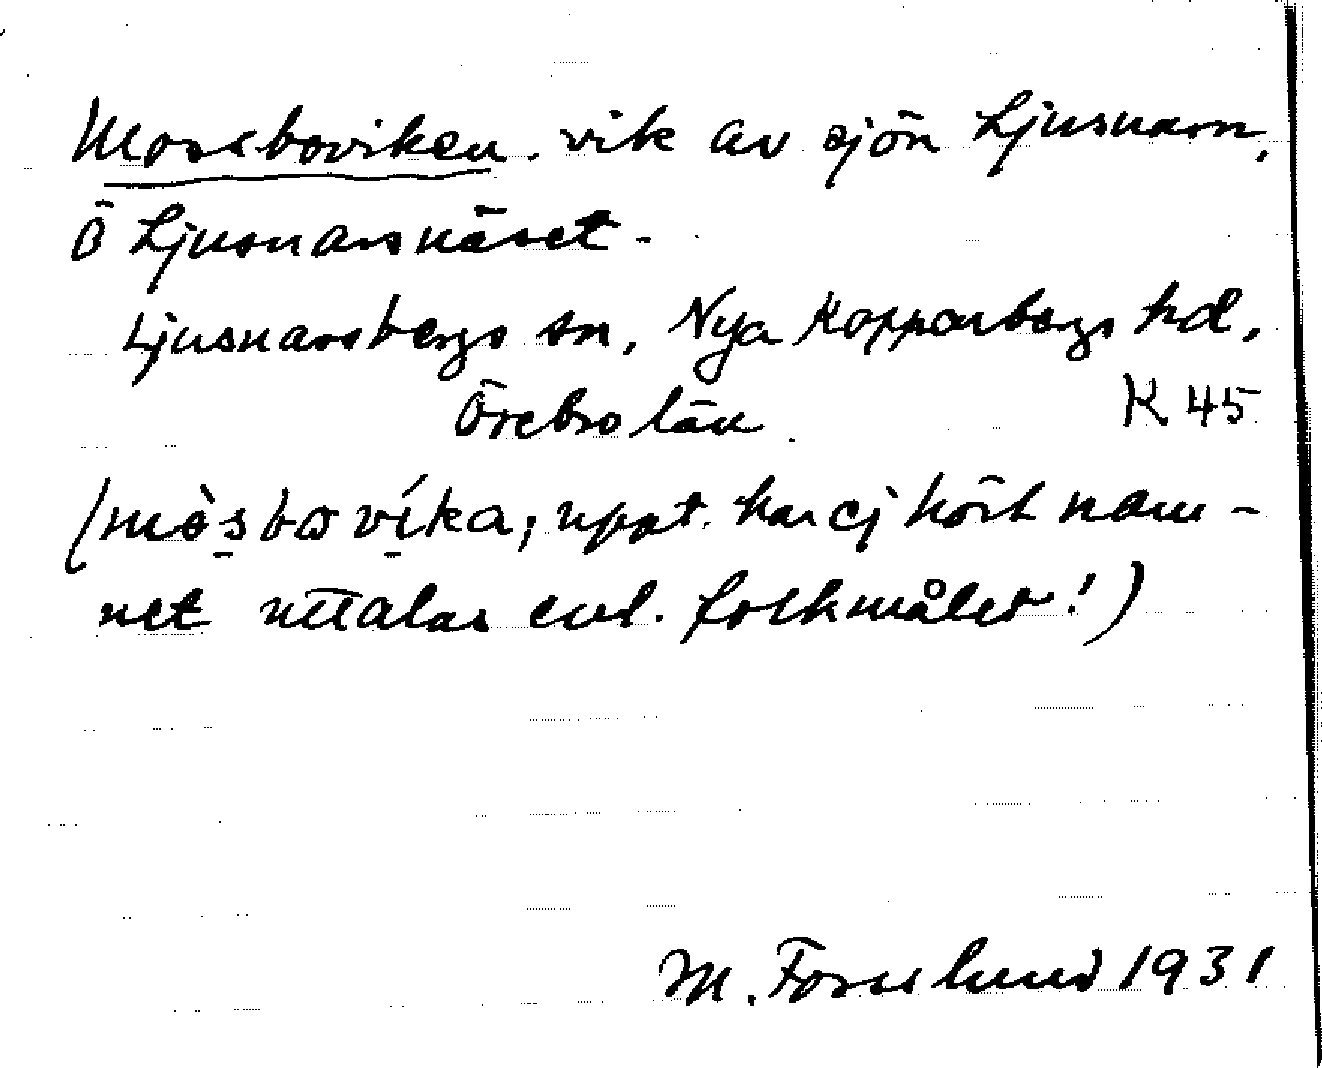 Mossboviken. vik av sjön Ljusnarn,
Ö Ljusnarsnäset.
Ljusnarsbergs sn, Nya Kopparbergs hd,
Örebro län. K 45
(mòsbo víka; uppt. har ej hört nam-
net uttalas enl. folkmålet!)
M. Forslund 1931